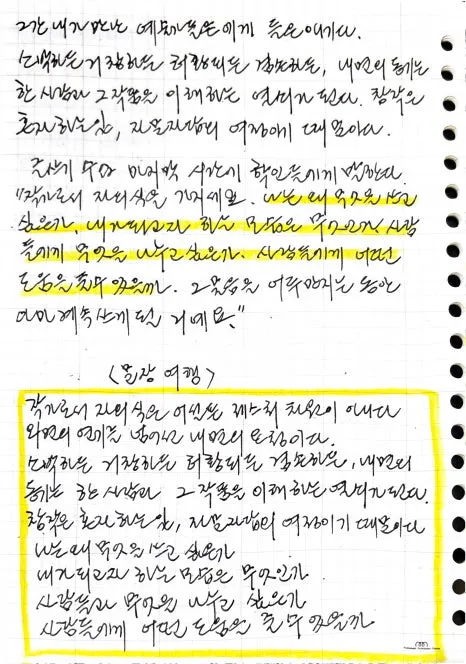 그간 내가 만난 예술가들에게 들은 얘기다.
소박하든 거창하든 허황되든 겸손하든, 내면의 동기는
한 사람과 그 작품을 이해하는 열쇠가 된다. 창작은
혼자 하는 일, 자문자답의 여정이기 때문이다.
글쓰기 수업 마지막 시간에 학인들에게 말한다.
"작가로서 자의식을 가지세요. 나는 왜 무엇을 쓰고
싶은가, 내가 되고자 하는 모습은 무엇인가 사람
들에게 무엇을 나누고 싶은가. 사람들에게 어떤
도움을 줄 수 있을까. 그 물음을 어루만지는 동안
이미 계속 쓰게 될 거예요."
〈문장 여행〉
작가로서 자의식은 어설픈 제스처 차원이 아니다
외면의 연기를 넘어선 내면의 요청이다.
소박하든 거창하든 허황되든 겸손하든, 내면의
동기는 한 사람과 그 작품을 이해하는 열쇠가 된다.
창작은 혼자 하는 일, 자문자답의 여정이기 때문이다
나는 왜 무엇을 쓰고 싶은가
내가 되고자 하는 모습은 무엇인가
사람들과 무엇을 나누고 싶은가
사람들에게 어떤 도움을 줄 수 있을까